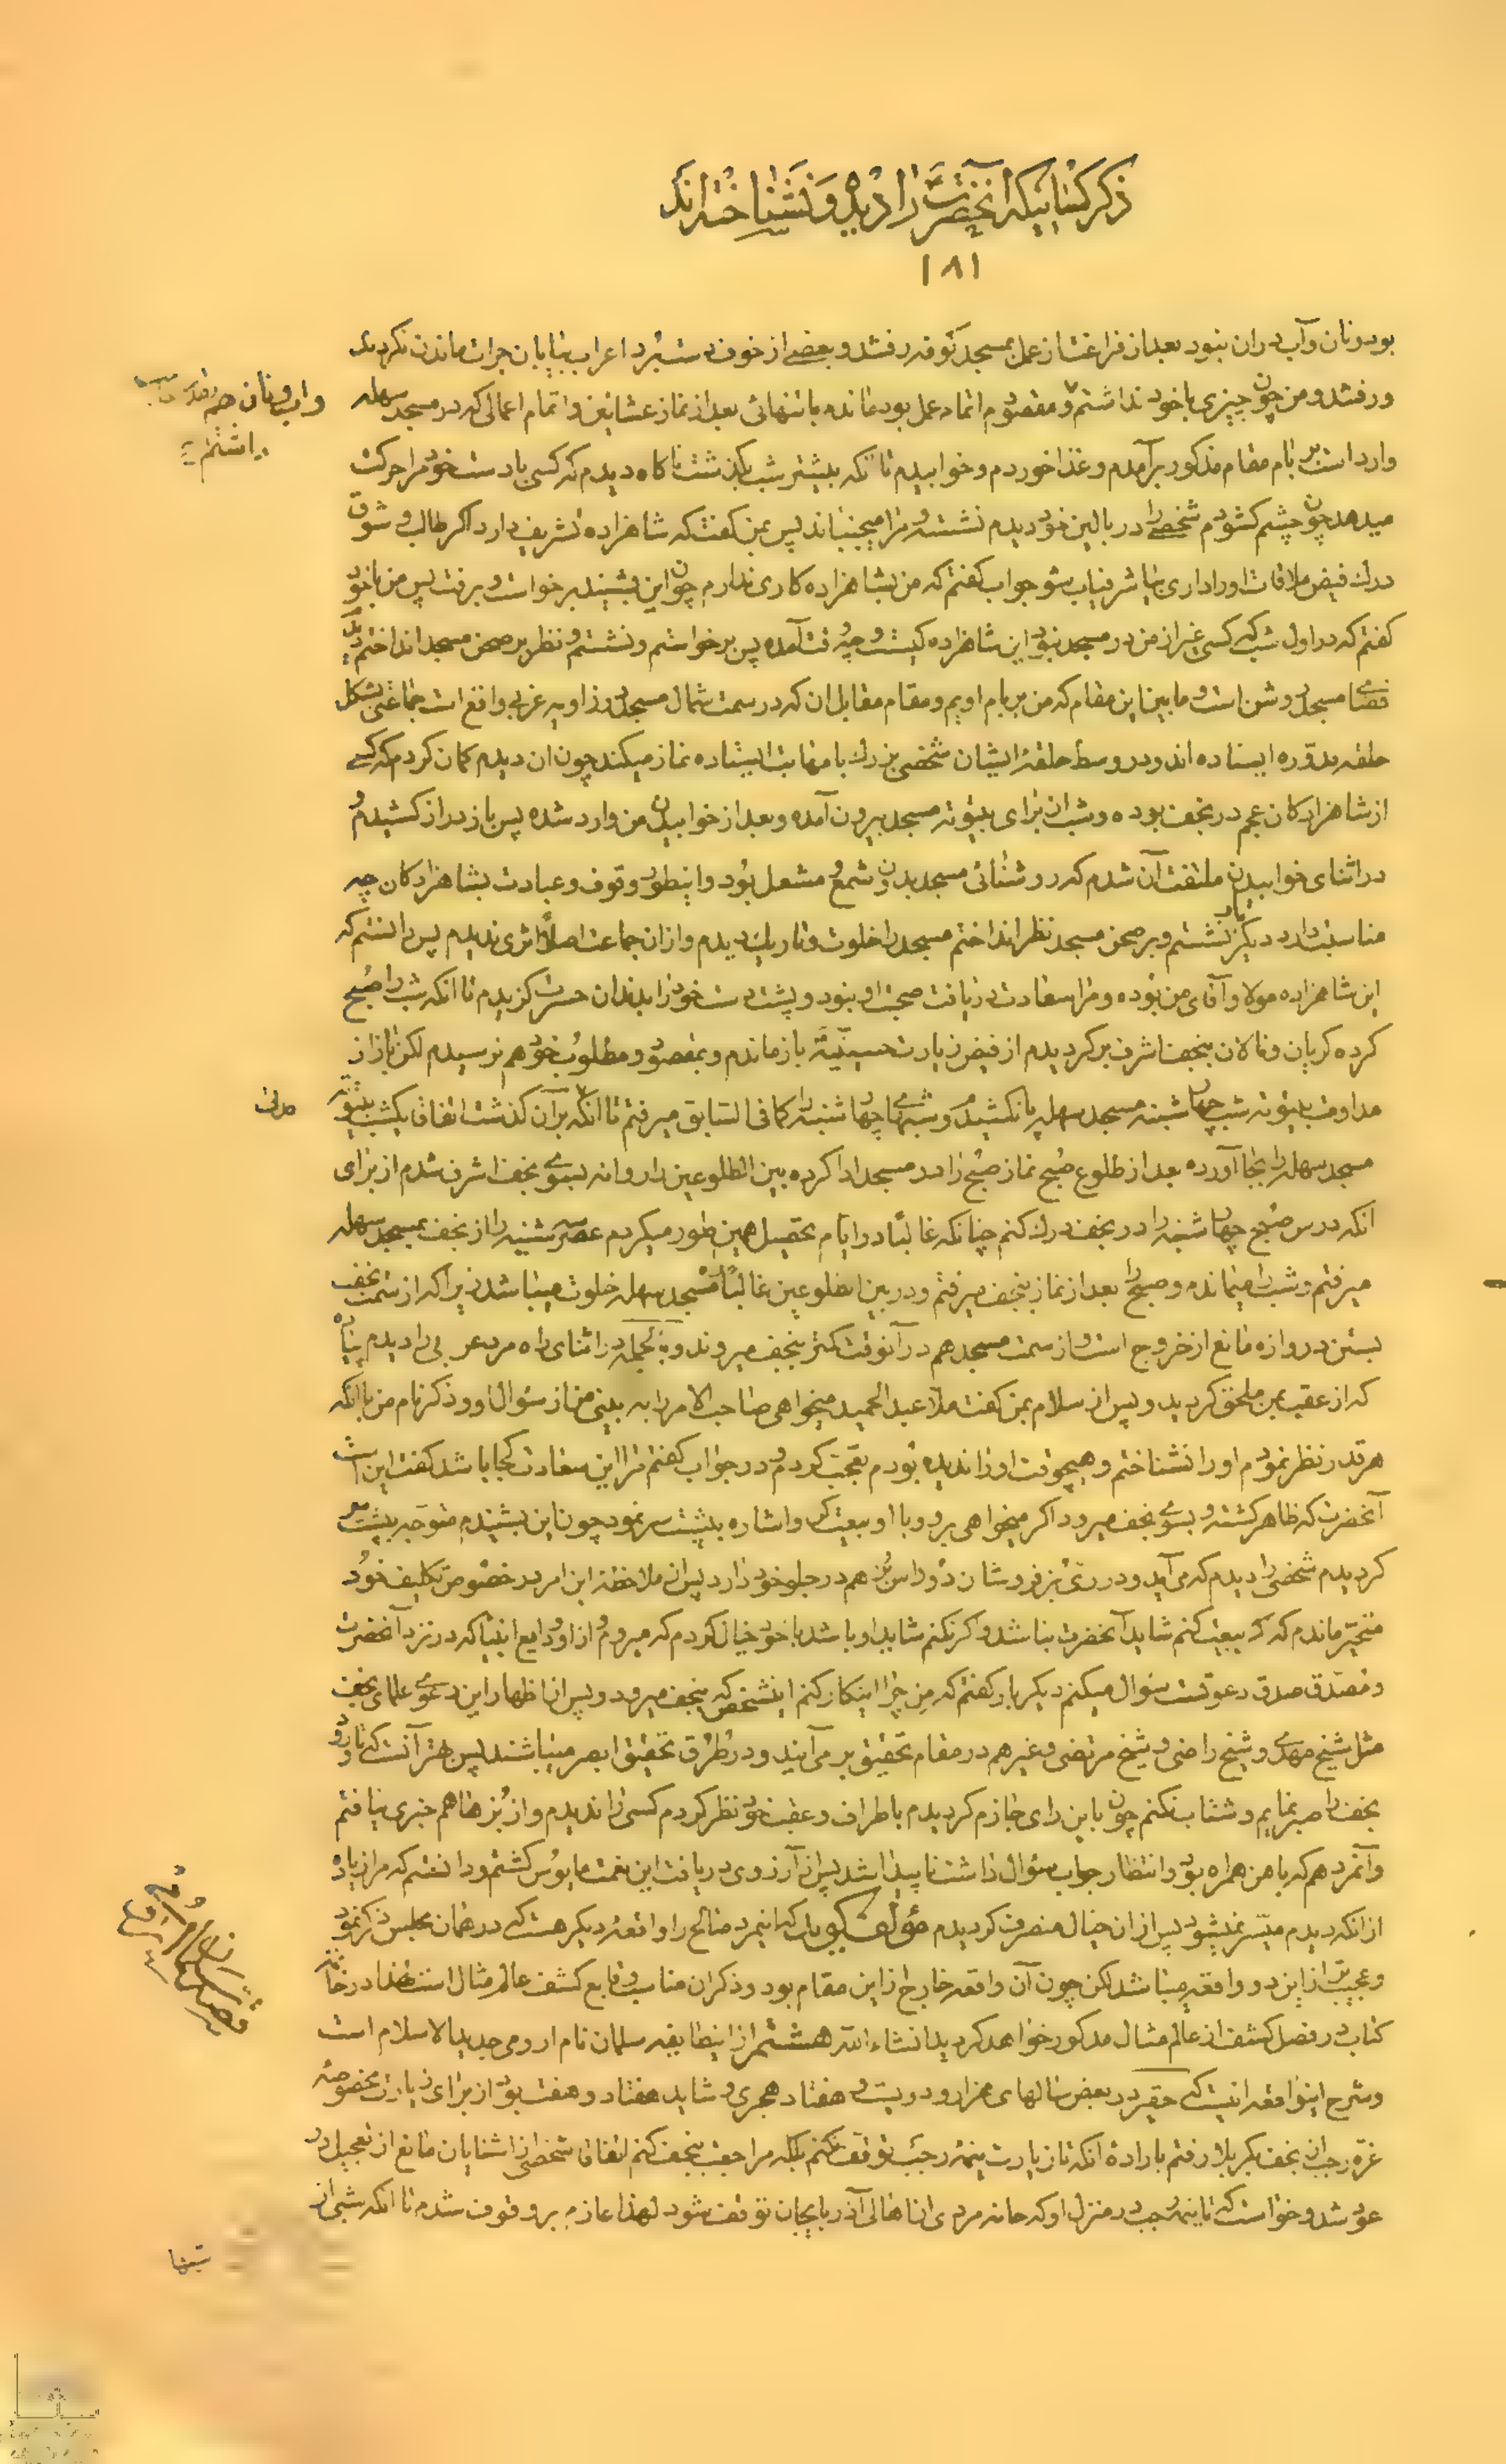 ذکر کسانیکه آنحضرت را دیده و نشناخته‌اند
۱۸۱
بود و نان و آب در ان نبود بعد از فراغت از عمل بمسجد کوفه رفتند و بعضی از خوف دستبرد اعراب بیابان جرات ماندن نکردند
ورفتند و من چون چیزی با خود نداشتم و مقصودم اتمام عمل بود مانده با تنهائی بعد از نماز عشایین و اتمام اعمالی که در مسجد سهله
و اب و نان هم بقدر
داشتم
وارد است بر بام مقام مذکور برآمدم و غذا خوردم و خوابیدم تا انکه بیشتر شب بگذشت ناگاه دیدم که کسی با دست خود مرا حرکت
میدهد چون چشم کشودم شخصی را در بالین خود دیدم نشسته و مرا میجنباند پس بمن گفت که شاهزاده تشریف دارد اگر طالب و شوق
درک فیض ملاقات او را داری بیا شرفیاب شو جواب گفتم که من بشاهزاده کاری ندارم چون این بشنید برخواست و برفت پس من با خود
گفتم که در اول شب که کسی غیر از من در مسجد نبود این شاهزاده کیست و چه وقت آمده پس برخواستم و نشستم و نظر بر صحن مسجد انداختم دیدم
فضای مسجد روشن است و مابین این مقام که من بر بام اویم و مقام مقابل ان که در سمت شمال مسجد در زاویه غربی واقع است جماعتی بشکل
حلقه مدوره ایستاده اند و در وسط حلقه ایشان شخصی بزرگ با مهابت ایستاده نماز میکند چون ان دیدم گمان کردم که کسی
از شاهزادکان عجم در نجف بوده و شب ان برای بیتوته مسجد بیرون آمده و بعد از خوابیدن من وارد شده پس باز دراز کشیدم و
در اثنای خوابیدن ملتفت آن شدم که روشنائی مسجد بدون شمع و مشعل بود و اینطور وقوف و عبادت بشاهزادکان چه
مناسبت دارد دیگر بار نشستم و بر صحن مسجد نظر انداختم مسجد را خلوت و تاریک دیدم و از ان جماعت اصلاً اثری ندیدم پس دانستم که
این شاهزاده مولا و آقای من بوده و مرا سعادت دریافت صحبت او نبود و پشت دست خود را بدندان حسرت گزیدم تا انکه شب را صبح
کرده گریان و نالان بنجف اشرف برگردیدم از فیض زیارت حسینیّه بازماندم و بمقصود و مطلوب خود هم نرسیدم لکن باز از
مداومت بیتوته شب چهار شنبه مسجد سهله پا نکشیدم و شبهای چهار شنبه را کما فی السابق میرفتم تا انکه بر آن گذشت اتفاقا یکشب بیتوته
مسجد سهله را بجا آورده بعد از طلوع صبح نماز صبح را در مسجد ادا کرده بین الطلوعین را روانه بسوی نجف اشرف شدم از برای
انکه درس صبح چهار شنبه را در نجف درک کنم چنانکه غالبًا در ایام تحصیل همین طور میکردم عصر سه شنبه را از نجف بمسجد سهله
میرفتم و شب را میماندم و صبح را بعد از نماز بنجف میرفتم و در بین الطلوعین غالبًا مسجد سهله خلوت میباشد زیرا که از سمت نجف
بستن دروازه مانع از خروج است و از سمت مسجد هم در آنوقت کمتر بنجف میروند و بالجمله در اثنای راه مرد عربی را دیدم پیاده
که از عقب بمن ملحق گردید و پس از سلام بمن گفت ملا عبد الحمید میخواهی صاحب الامر را به بینی من از سؤال او و ذکر نام من با انکه
هر قدر نظر نمودم او را نشناختم و هیچوقت او را ندیده بودم تعجب کردم و در جواب گفتم مرا این سعادت کجا باشد گفت این است
آنحضرت که ظاهر گشته و بسوی نجف میرود اگر میخواهی برو و با او بیعت کن و اشاره به پشت سر نمود چون این بشنیدم متوجه پشت سر
گردیدم شخصی را دیدم که می‌آید و در زیّ بزفروشان دو راس بز هم در جلو خود دارد پس از ملاحظه این امر در خصوص تکلیف خود
متحیر ماندم که اگر بیعت کنم شاید آنحضرت نباشد و اگر نکنم شاید او باشد با خود خیال کردم که میروم و از او ودایع انبیا که در نزد آنحضرت
و مصدق صدق دعوتست سؤال میکنم دیگر بار گفتم که من چرا اینکار کنم اینشخص که بنجف میرود و پس از اظهار این دعوی علمای نجف
مثل شیخ مهدی و شیخ راضی و شیخ مرتضی و غیرهم در مقام تحقیق بر می‌آیند و در طرق تحقیق ابصر میباشند پس بهتر آنست که تا ورود
نجف را صبر نمایم و شتاب نکنم چون باین رای جازم گردیدم باطراف و عقب خود نظر کردم کسی را ندیدم و از بزها هم خبری نیافتم
و آنمرد هم که با من همراه بود و انتظار جواب سؤال داشت ناپیدا شد پس از آرزوی دریافت این نعمت مایوس گشتم و دانستم که مرا زیاده
از انکه دیدم میسر نمیشود پس از ان خیال منصرف گردیدم مؤلف گوید که اینمرد صالح را واقعه دیگر هست که در همان مجلس ذکر نمود
و عجیب تر از این دو واقعه میباشد لکن چون آن واقعه خارج از این مقام بود و ذکر ان مناسب وقایع کشف عالم مثال است لهذا در خاتمه
کتاب در فصل کشف از عالم مثال مذکور خواهد گردید انشاء الله هشتم از اینطایفه سلمان نام ارومی جدید الاسلام است
و شرح اینواقعه انیست که حقیر در بعض سالهای هزار و دویست و هفتاد هجری و شاید هفتاد و هفت بود از برای زیارت مخصوصه
غره رجب از نجف بکربلا رفتم باراده انکه تا زیارت نیمه رجب توقف نکنم بلکه مراجعت بنجف کنم اتفاقا شخصی از اشنایان مانع از تعجیل در
عود شد و خواست که تا نیمه رجب در منزل او که خانه مردی از اهالی آذربایجان توقف شود لهذا عازم بر وقوف شدم تا انکه شبی از
شبها